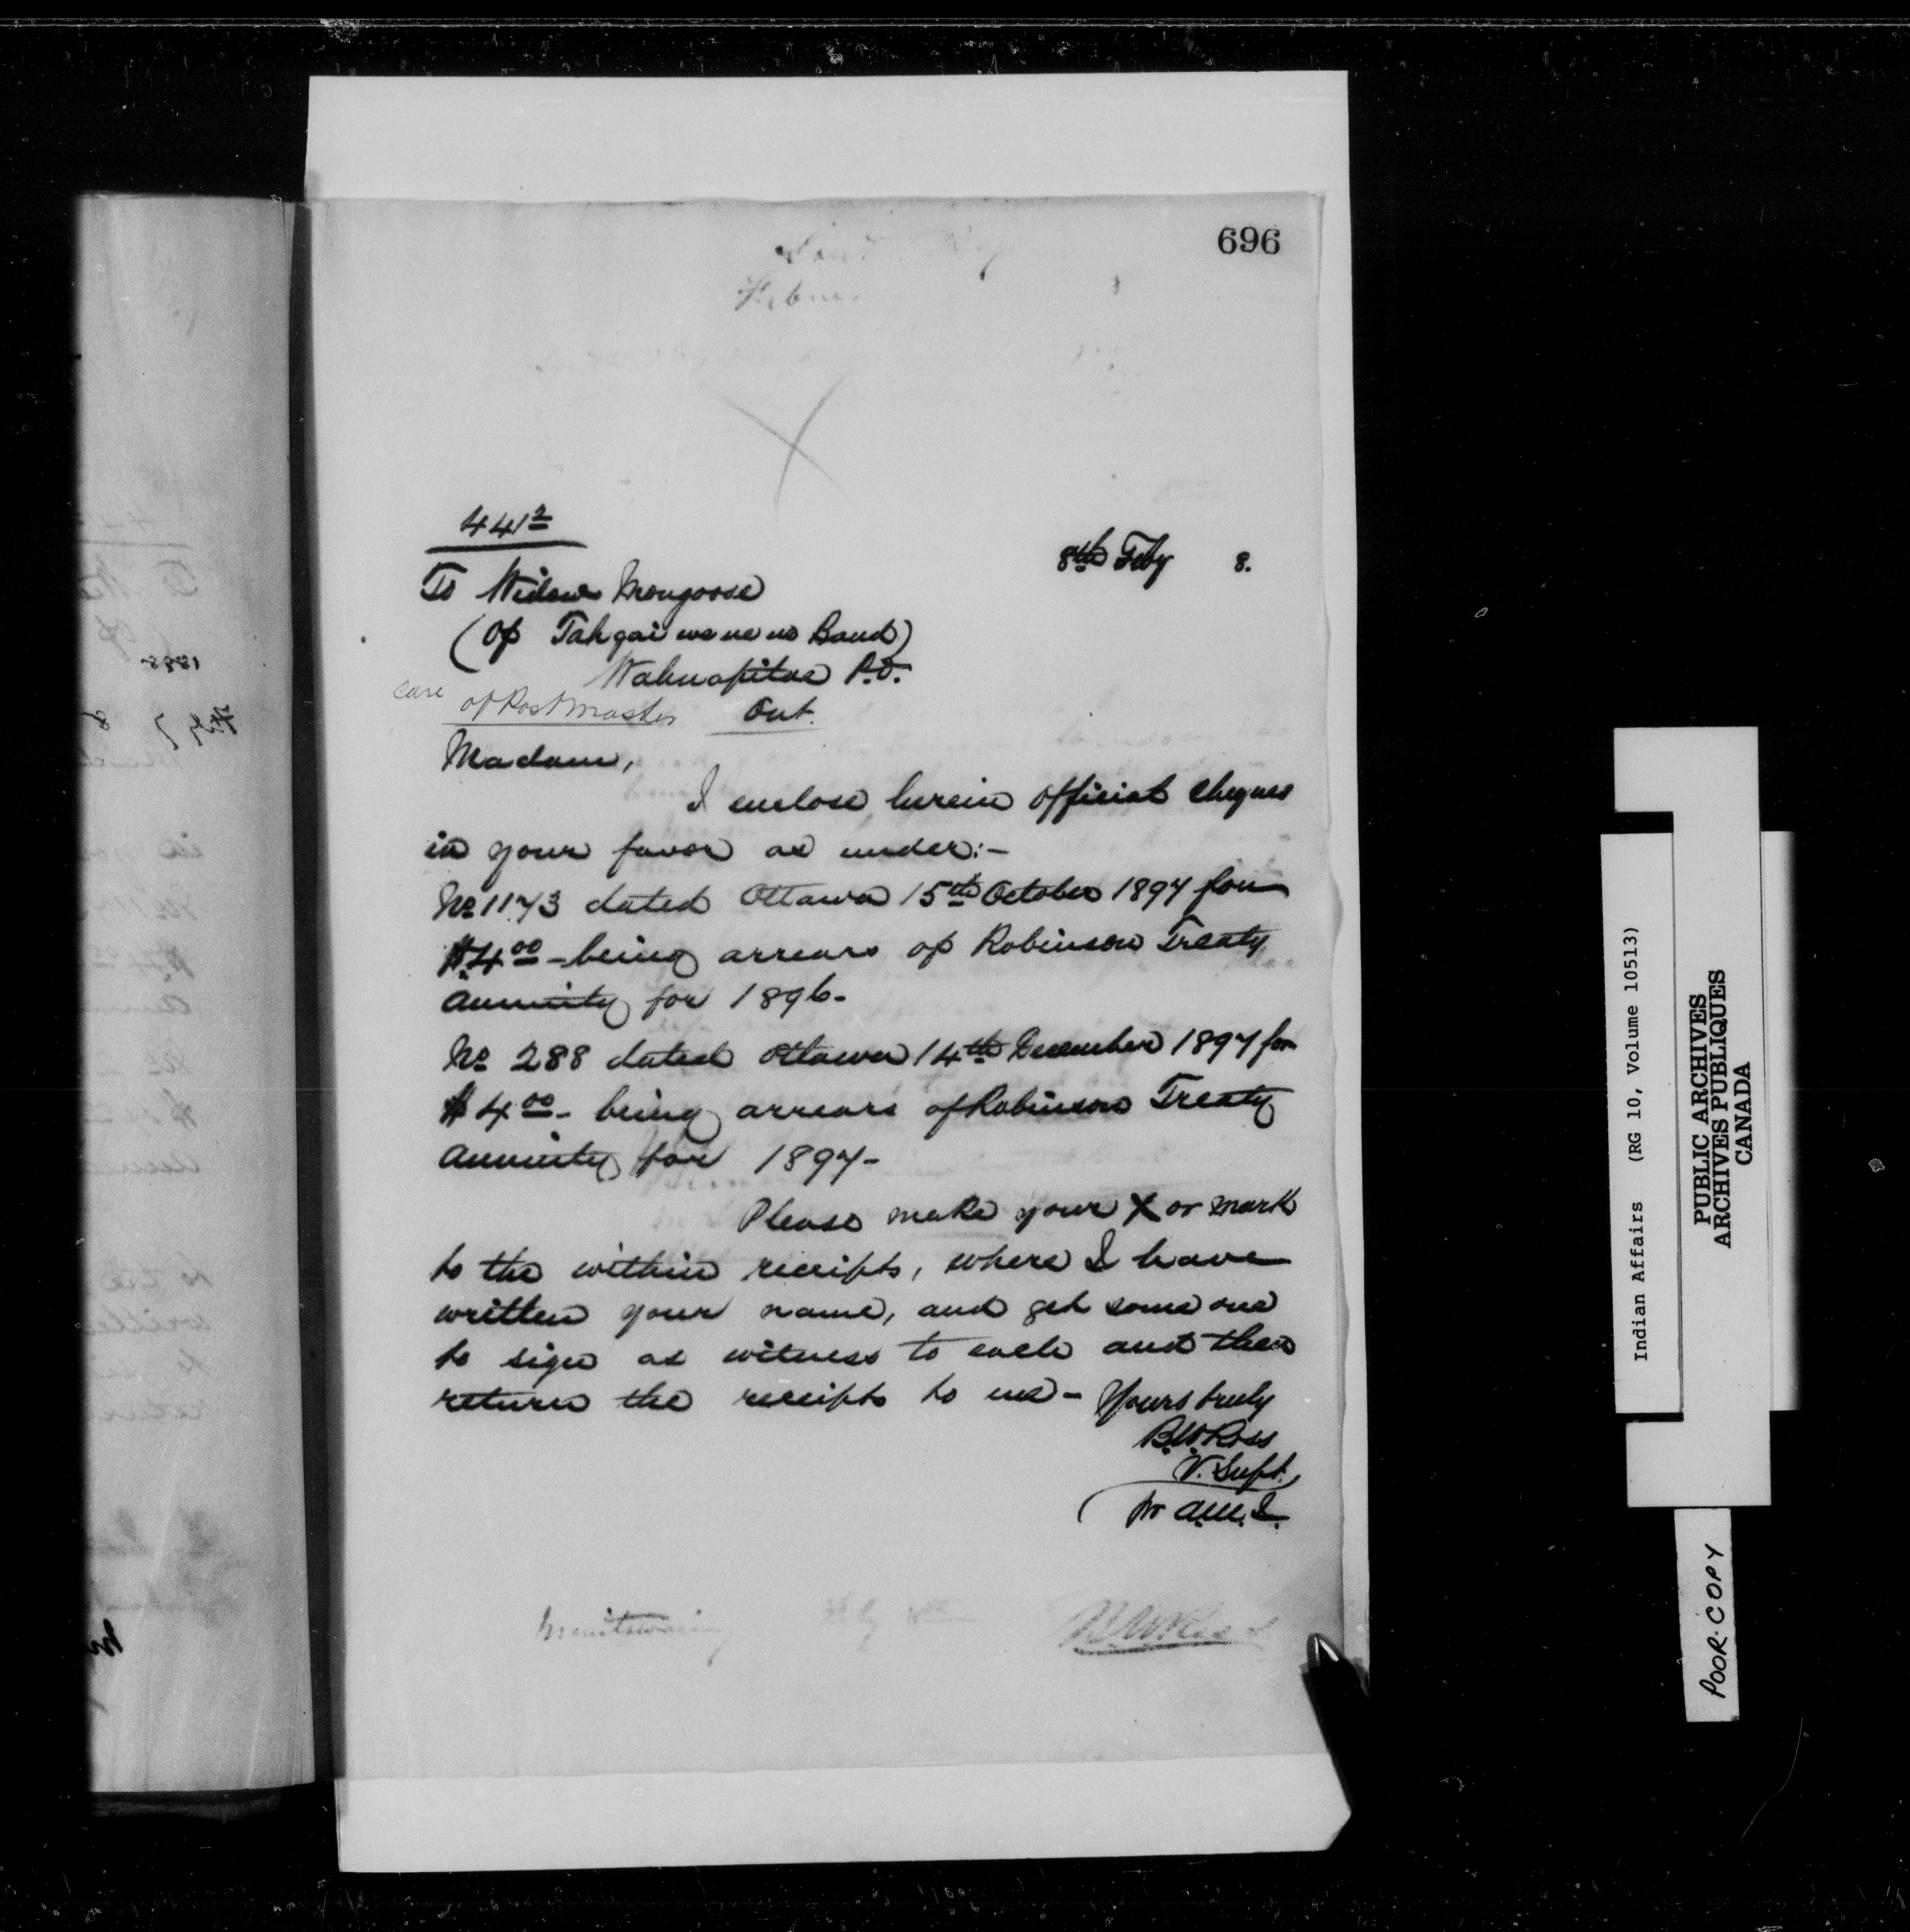 696
441²
8th Feby 8.
To Widow Mongoose
(Of Tahgaiwenene Band)
Wahnapitae P.O.
care of Postmaster Ont.
Madam,
I enclose herein official cheques
in your favor as under:-
No 1173 dated Ottawa 15th October 1897 for
$4.00 - being arrears of Robinson Treaty
Annuity for 1896-
No 288 dated Ottawa 14th December 1897 for
$4.00 - being arrears of Robinson Treaty
Annuity for 1897-
Please make your X or mark
to the within receipts, where I have
written your name, and get some one
to sign as witness to each and then
return the receipts to me - Yours truly
B.W. Ross
V. Supt.
Manitowaning
B.W. Ross
Indian Affairs (RG 10, Volume 10513)
PUBLIC ARCHIVES
ARCHIVES PUBLIQUES
CANADA
POOR COPY